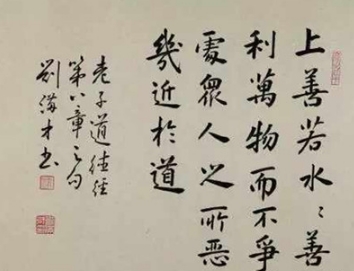 上善若水〻善
利萬物而不爭
處眾人之所恶
幾近於道
老子道德经
第八章之句
劉才书